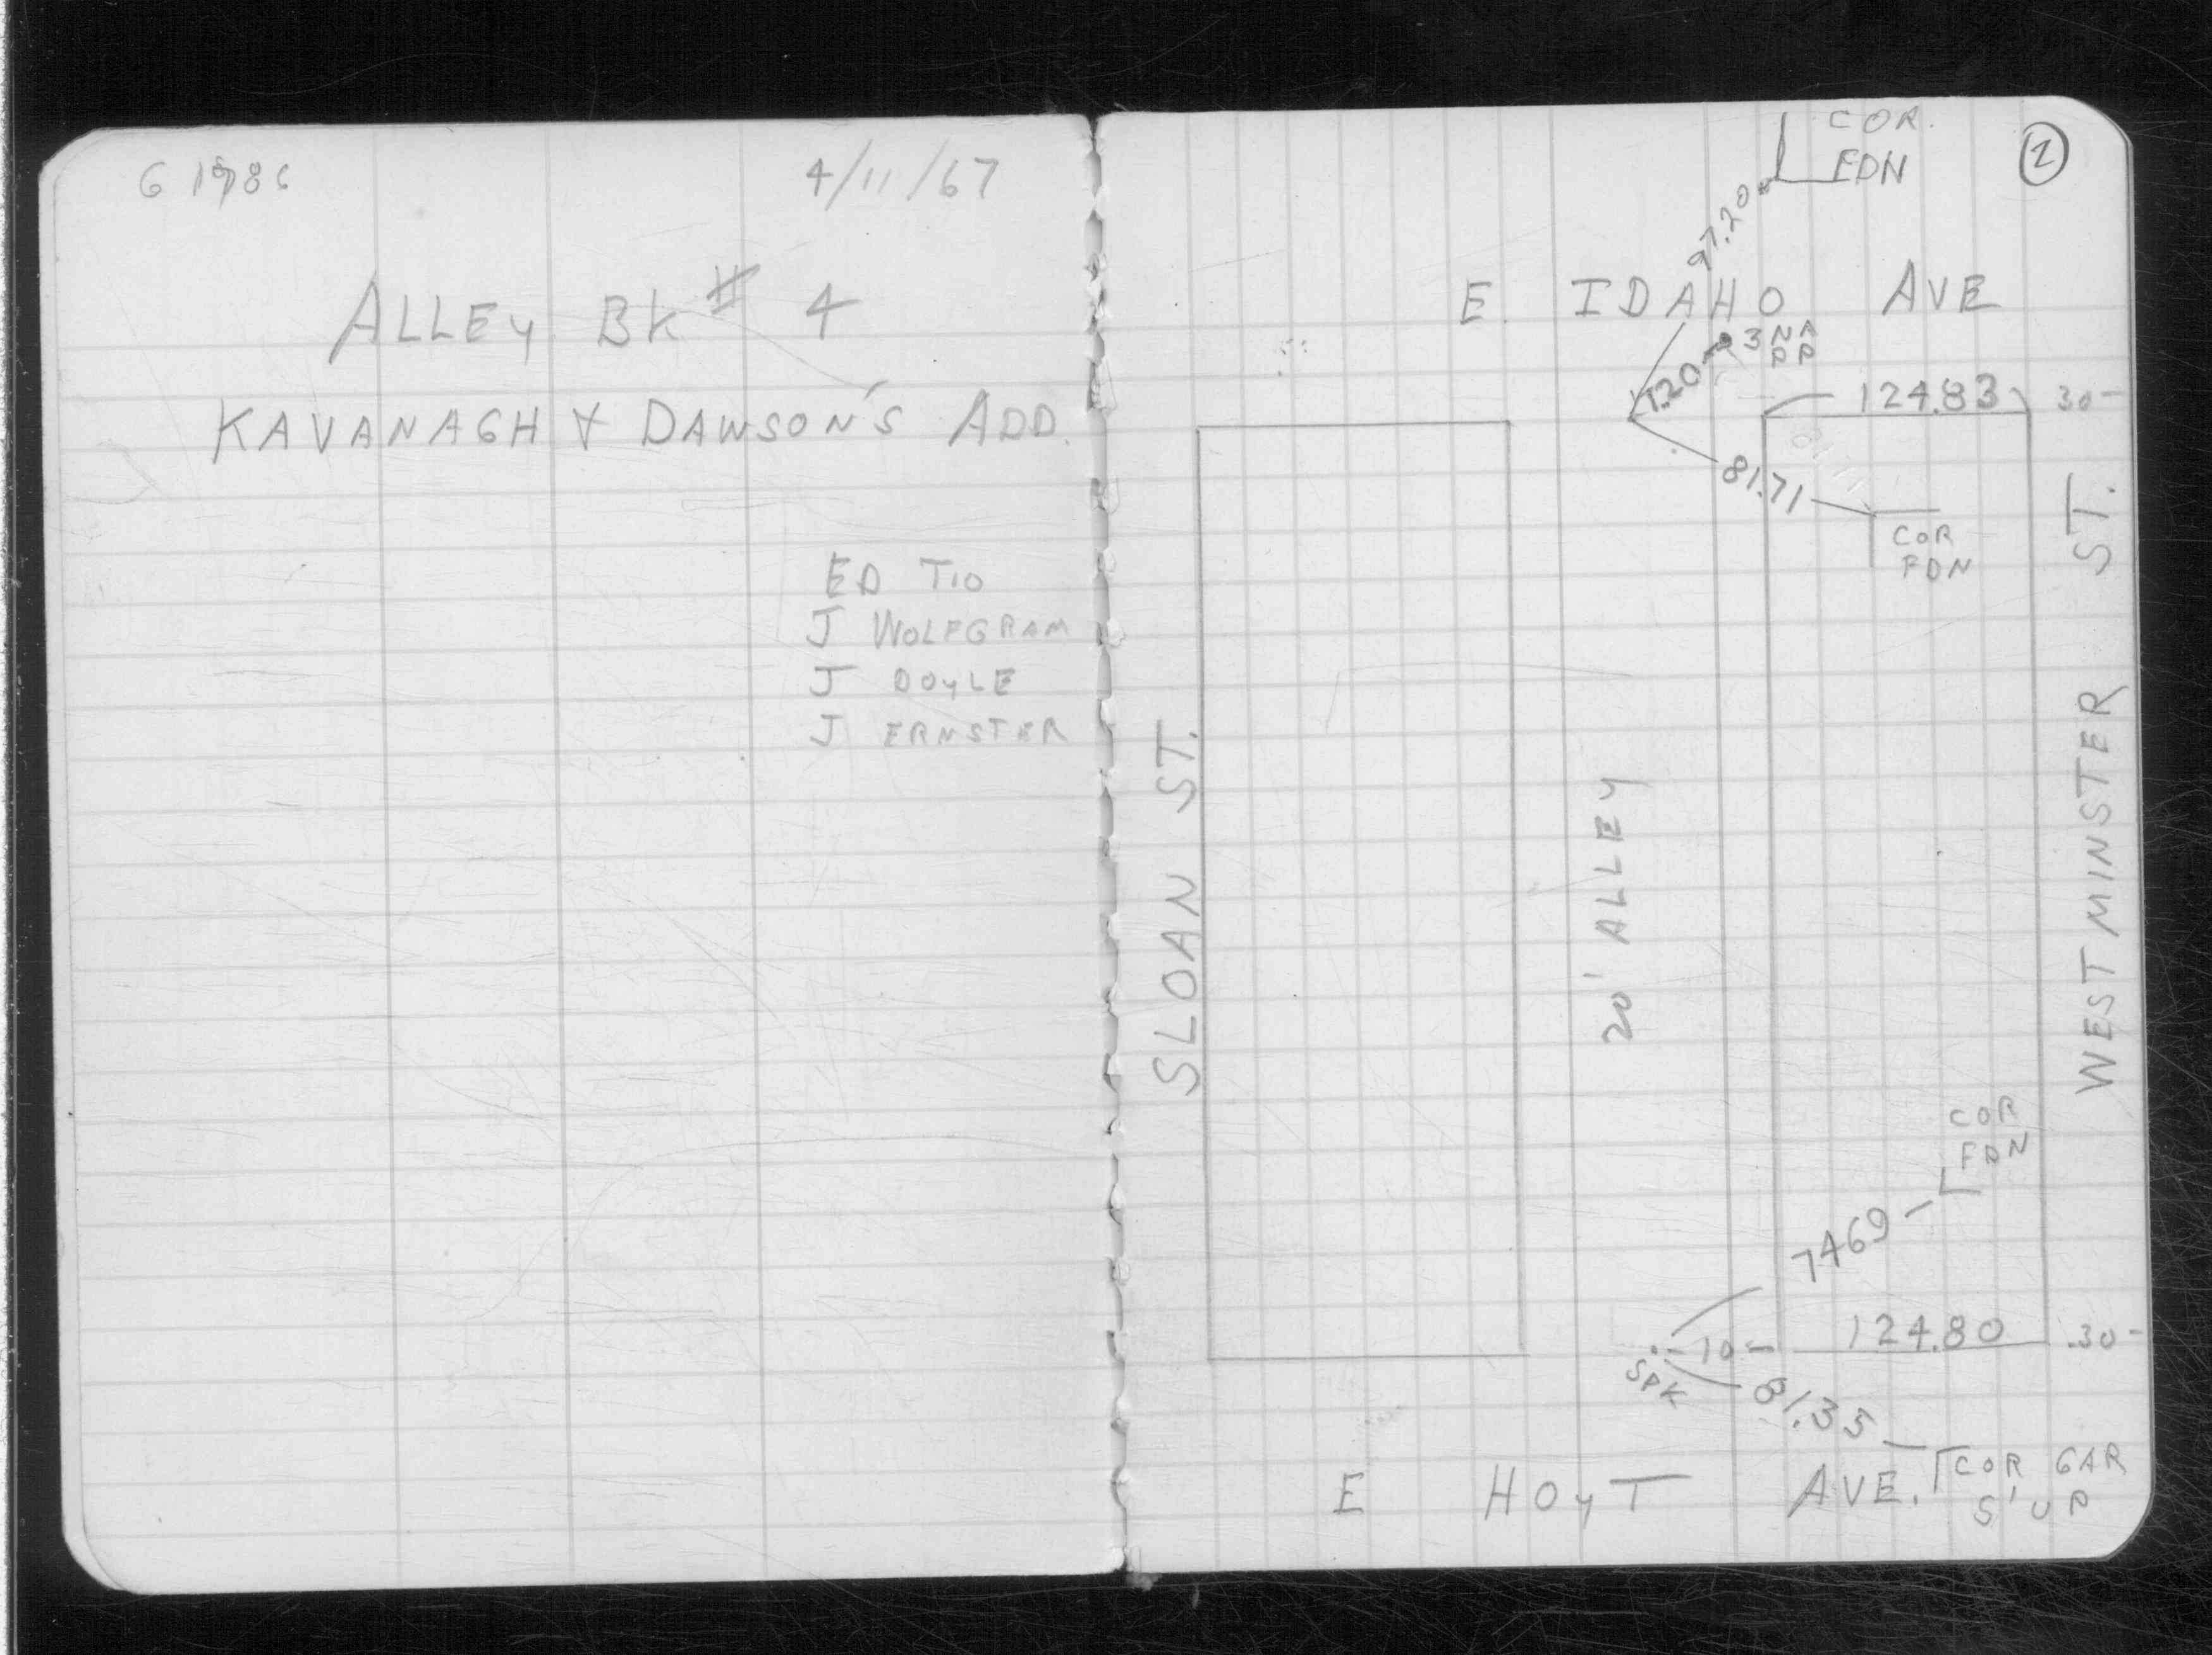 4/11/67
ALLEY BK # 4
KAVANAGH & DAWSON'S ADD.
ED TIO
J WOLFGRAM
J DOYLE
J ERNSTER
COR.
FDN
97.20
E. IDAHO AVE
3 NA
PP
7.20
124.83
30-
81.71
COR
FDN
SLOAN ST.
20' ALLEY
WESTMINSTER ST.
COR
FDN
7469
124.80
30-
10-
SPK
81.35
E HOYT AVE.
COR GAR
5' UP